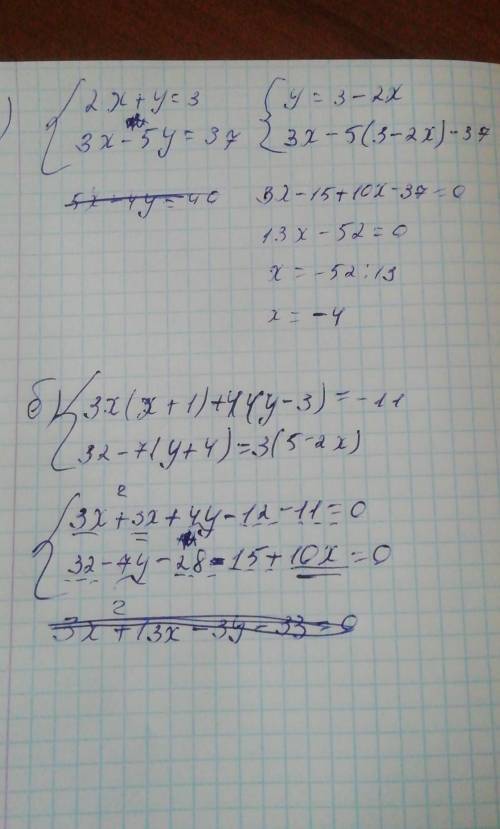 ) { 2x + y = 3
3x - 5y = 37
5x - 4y = 40
{ y = 3 - 2x
3x - 5(3 - 2x) - 37
3x - 15 + 10x - 37 = 0
13x - 52 = 0
x = -52 : 13
x = -4
б) { 3x(x + 1) + 4(y - 3) = -11
32 - 7(y + 4) = 3(5 - 2x)
{ 3x² + 3x + 4y - 12 - 11 = 0
32 - 7y - 28 - 15 + 10x = 0
3x² + 13x - 3y - 33 = 0